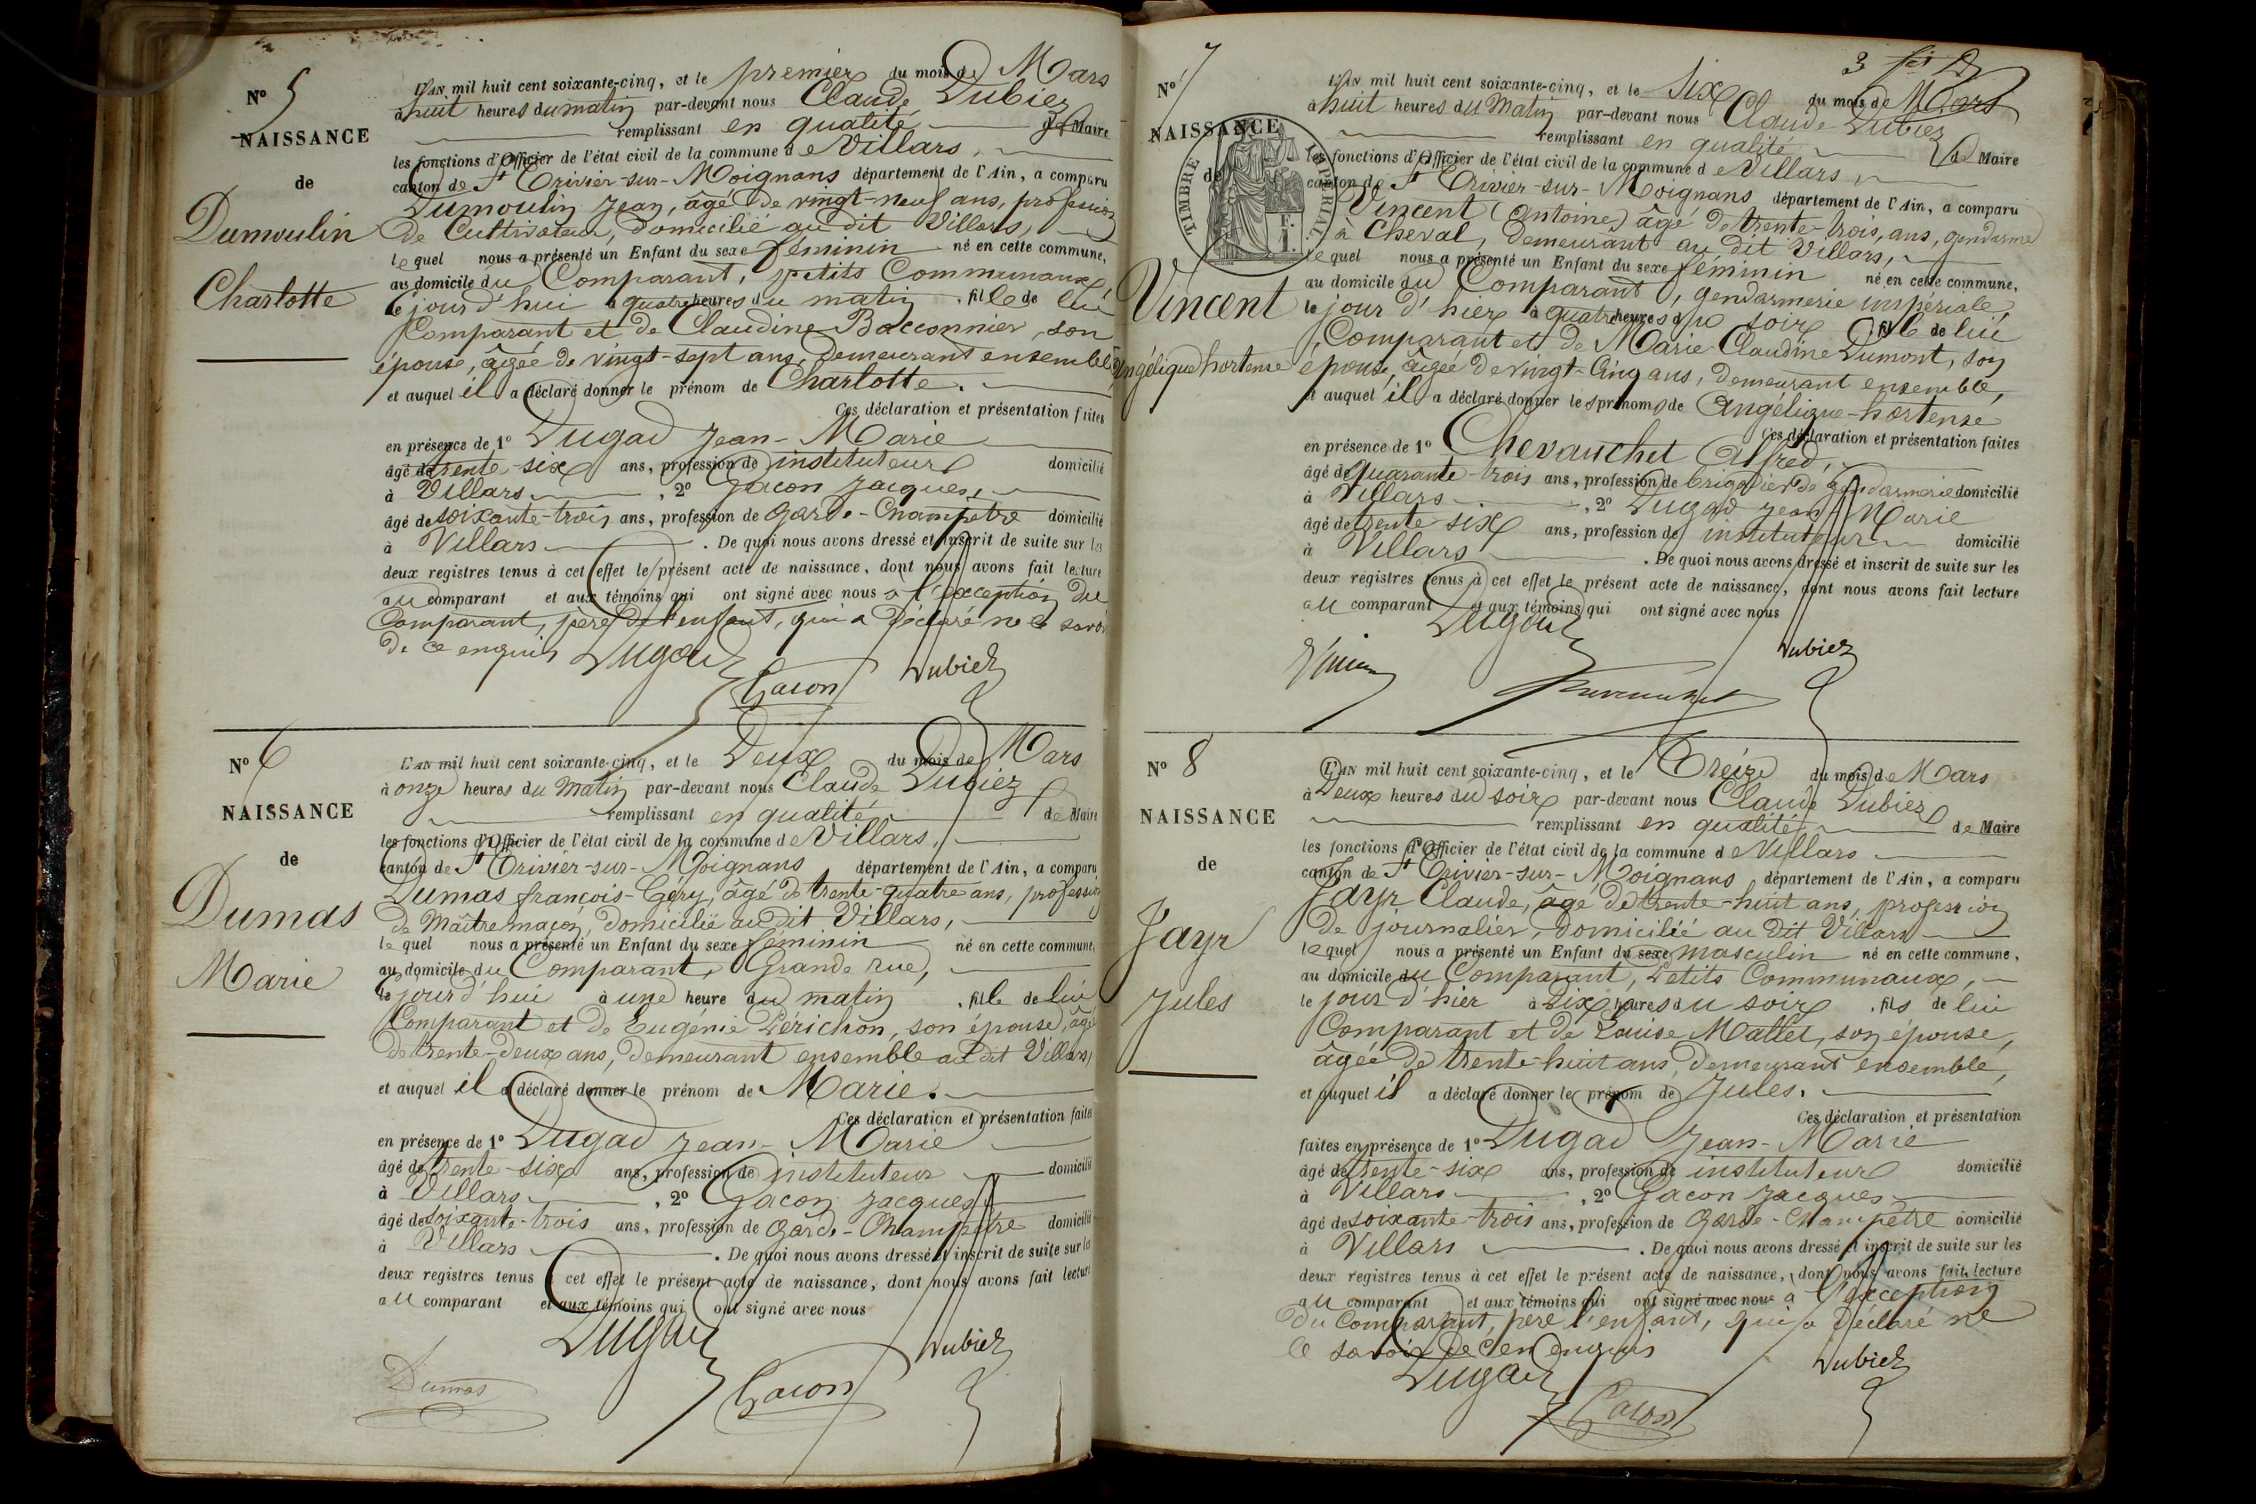 N° 5
NAISSANCE
de
Dumoulin
Charlotte
L'AN mil huit cent soixante-cinq, et le premier du mois de Mars
à huit heures du matin par-devant nous Claude Dubiez
remplissant en qualité de Maire
les fonctions d'Officier de l'état civil de la commune de Villars,
canton de St Trivier-sur-Moignans département de l'Ain, a comparu
Dumoulin Jean, âgé de vingt-neuf ans, profession
de Cultivateur, domicilié au dit Villars,
lequel nous a présenté un Enfant du sexe féminin né en cette commune,
au domicile du Comparant, petits Communaux,
le jour d'hui à quatre heures du matin . fille de lui
Comparant et de Claudine Bacconnier, son
épouse, âgée de vingt-sept ans, demeurant ensemble,
et auquel il a déclaré donner le prénom de Charlotte.
Ces déclaration et présentation faites
en présence de 1° Dugad Jean-Marie
âgé de trente-six ans, profession de instituteur domicilié
à Villars , 2° Gacon Jacques,
âgé de soixante-trois ans, profession de garde-Champêtre domicilié
à Villars . De quoi nous avons dressé et inscrit de suite sur les
deux registres tenus à cet effet le présent acte de naissance, dont nous avons fait lecture
au comparant et aux témoins qui ont signé avec nous à l'exception du
Comparant, père de l'enfant, qui a déclaré ne le savoir
de ce enquis Dugad
Gacon Dubiez
N° 6
NAISSANCE
de
Dumas
Marie
L'AN mil huit cent soixante-cinq, et le Deux du mois de Mars
à onze heures du matin par-devant nous Claude Dubiez
remplissant en qualité de Maire
les fonctions d'Officier de l'état civil de la commune de Villars,
canton de St Trivier-sur-Moignans département de l'Ain, a comparu
Dumas françois-Géry, âgé de trente-quatre ans, profession
de Maître maçon, domicilié au dit Villars,
lequel nous a présenté un Enfant du sexe féminin né en cette commune,
au domicile du Comparant, Grande rue,
le jour d'hui à une heure du matin . fille de lui
Comparant et de Eugénie Périchon, son épouse, âgée
de trente-deux ans, demeurant ensemble au dit Villars,
et auquel il a déclaré donner le prénom de Marie.
Ces déclaration et présentation faites
en présence de 1° Dugad Jean-Marie
âgé de trente-six ans, profession de instituteur domicilié
à Villars , 2° Gacon Jacques
âgé de soixante-trois ans, profession de garde-Champêtre domicilié
à Villars . De quoi nous avons dressé et inscrit de suite sur les
deux registres tenus à cet effet le présent acte de naissance, dont nous avons fait lecture
au comparant et aux témoins qui ont signé avec nous
Dugad Dubiez
Dumas Gacon
3
N° 7
NAISSANCE
de
Vincent
Angélique hortense
TIMBRE IMPÉRIAL
L'AN mil huit cent soixante-cinq, et le Six du mois de Mars
à huit heures du Matin par-devant nous Claude Dubiez
remplissant en qualité de Maire
les fonctions d'Officier de l'état civil de la commune de Villars,
canton de St Trivier-sur-Moignans département de l'Ain, a comparu
Vincent (Antoine) âgé de trente-trois, ans, gendarme
à Cheval, demeurant au dit Villars,
lequel nous a présenté un Enfant du sexe féminin né en cette commune,
au domicile du Comparant, gendarmerie impériale,
le jour d'hier à quatre heures du soir . fille de lui
Comparant et de Marie Claudine Dumont, son
épouse, âgée de vingt-Cinq ans, demeurant ensemble,
et auquel il a déclaré donner les prénoms de Angélique-hortense
Ces déclaration et présentation faites
en présence de 1° Chevauchet Alfred,
âgé de quarante-trois ans, profession de brigadier de gendarmerie domicilié
à Villars , 2° Dugad Jean-Marie
âgé de trente six ans, profession de instituteur domicilié
à Villars . De quoi nous avons dressé et inscrit de suite sur les
deux registres tenus à cet effet le présent acte de naissance, dont nous avons fait lecture
au comparant et aux témoins qui ont signé avec nous
Dugad Dubiez
N° 8
NAISSANCE
de
Jayr
Jules
L'AN mil huit cent soixante-cinq, et le Treize du mois de Mars
à Deux heures du soir par-devant nous Claude Dubiez
remplissant en qualité de Maire
les fonctions d'Officier de l'état civil de la commune de Villars
canton de St Trivier-sur-Moignans département de l'Ain, a comparu
Jayr Claude, âgé de trente-huit ans, profession
de journalier, domicilié au dit Villars
lequel nous a présenté un Enfant du sexe masculin né en cette commune,
au domicile du Comparant, Petits Communaux,
le jour d'hier à Dix heures du soir . fils de lui
Comparant et de Louise Mallet, son épouse,
âgée de trente-huit ans, demeurant ensemble,
et auquel il a déclaré donner le prénom de Jules.
Ces déclaration et présentation
faites en présence de 1° Dugad Jean-Marie
âgé de trente-six ans, profession de instituteur domicilié
à Villars , 2° Gacon Jacques
âgé de soixante-trois ans, profession de garde-Champêtre domicilié
à Villars . De quoi nous avons dressé et inscrit de suite sur les
deux registres tenus à cet effet le présent acte de naissance, dont nous avons fait lecture
au comparant et aux témoins qui ont signé avec nous à l'exception
du Comparant, père l'enfant, qui a déclaré ne
le savoir de ce enquis
Dugad Dubiez
Gacon